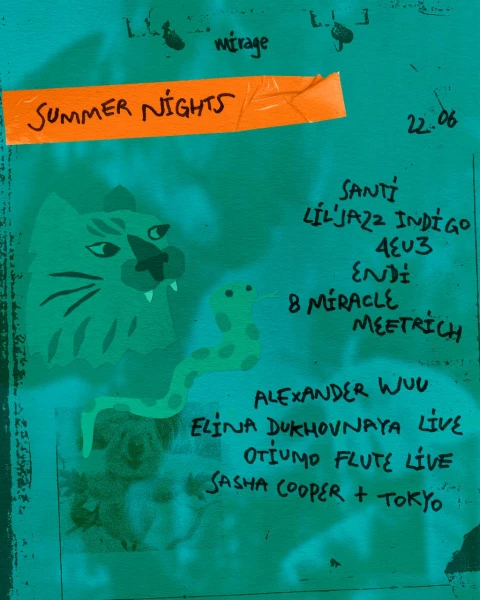 mirage
SUMMER NIGHTS
22.06
SANTI
LIL'JAZZ INDIGO
4EU3
ENDI
8 MIRACLE
MEETRICH
ALEXANDER WUU
ELINA DUKHOVNAYA LIVE
OTIUMO FLUTE LIVE
SASHA COOPER + TOKYO